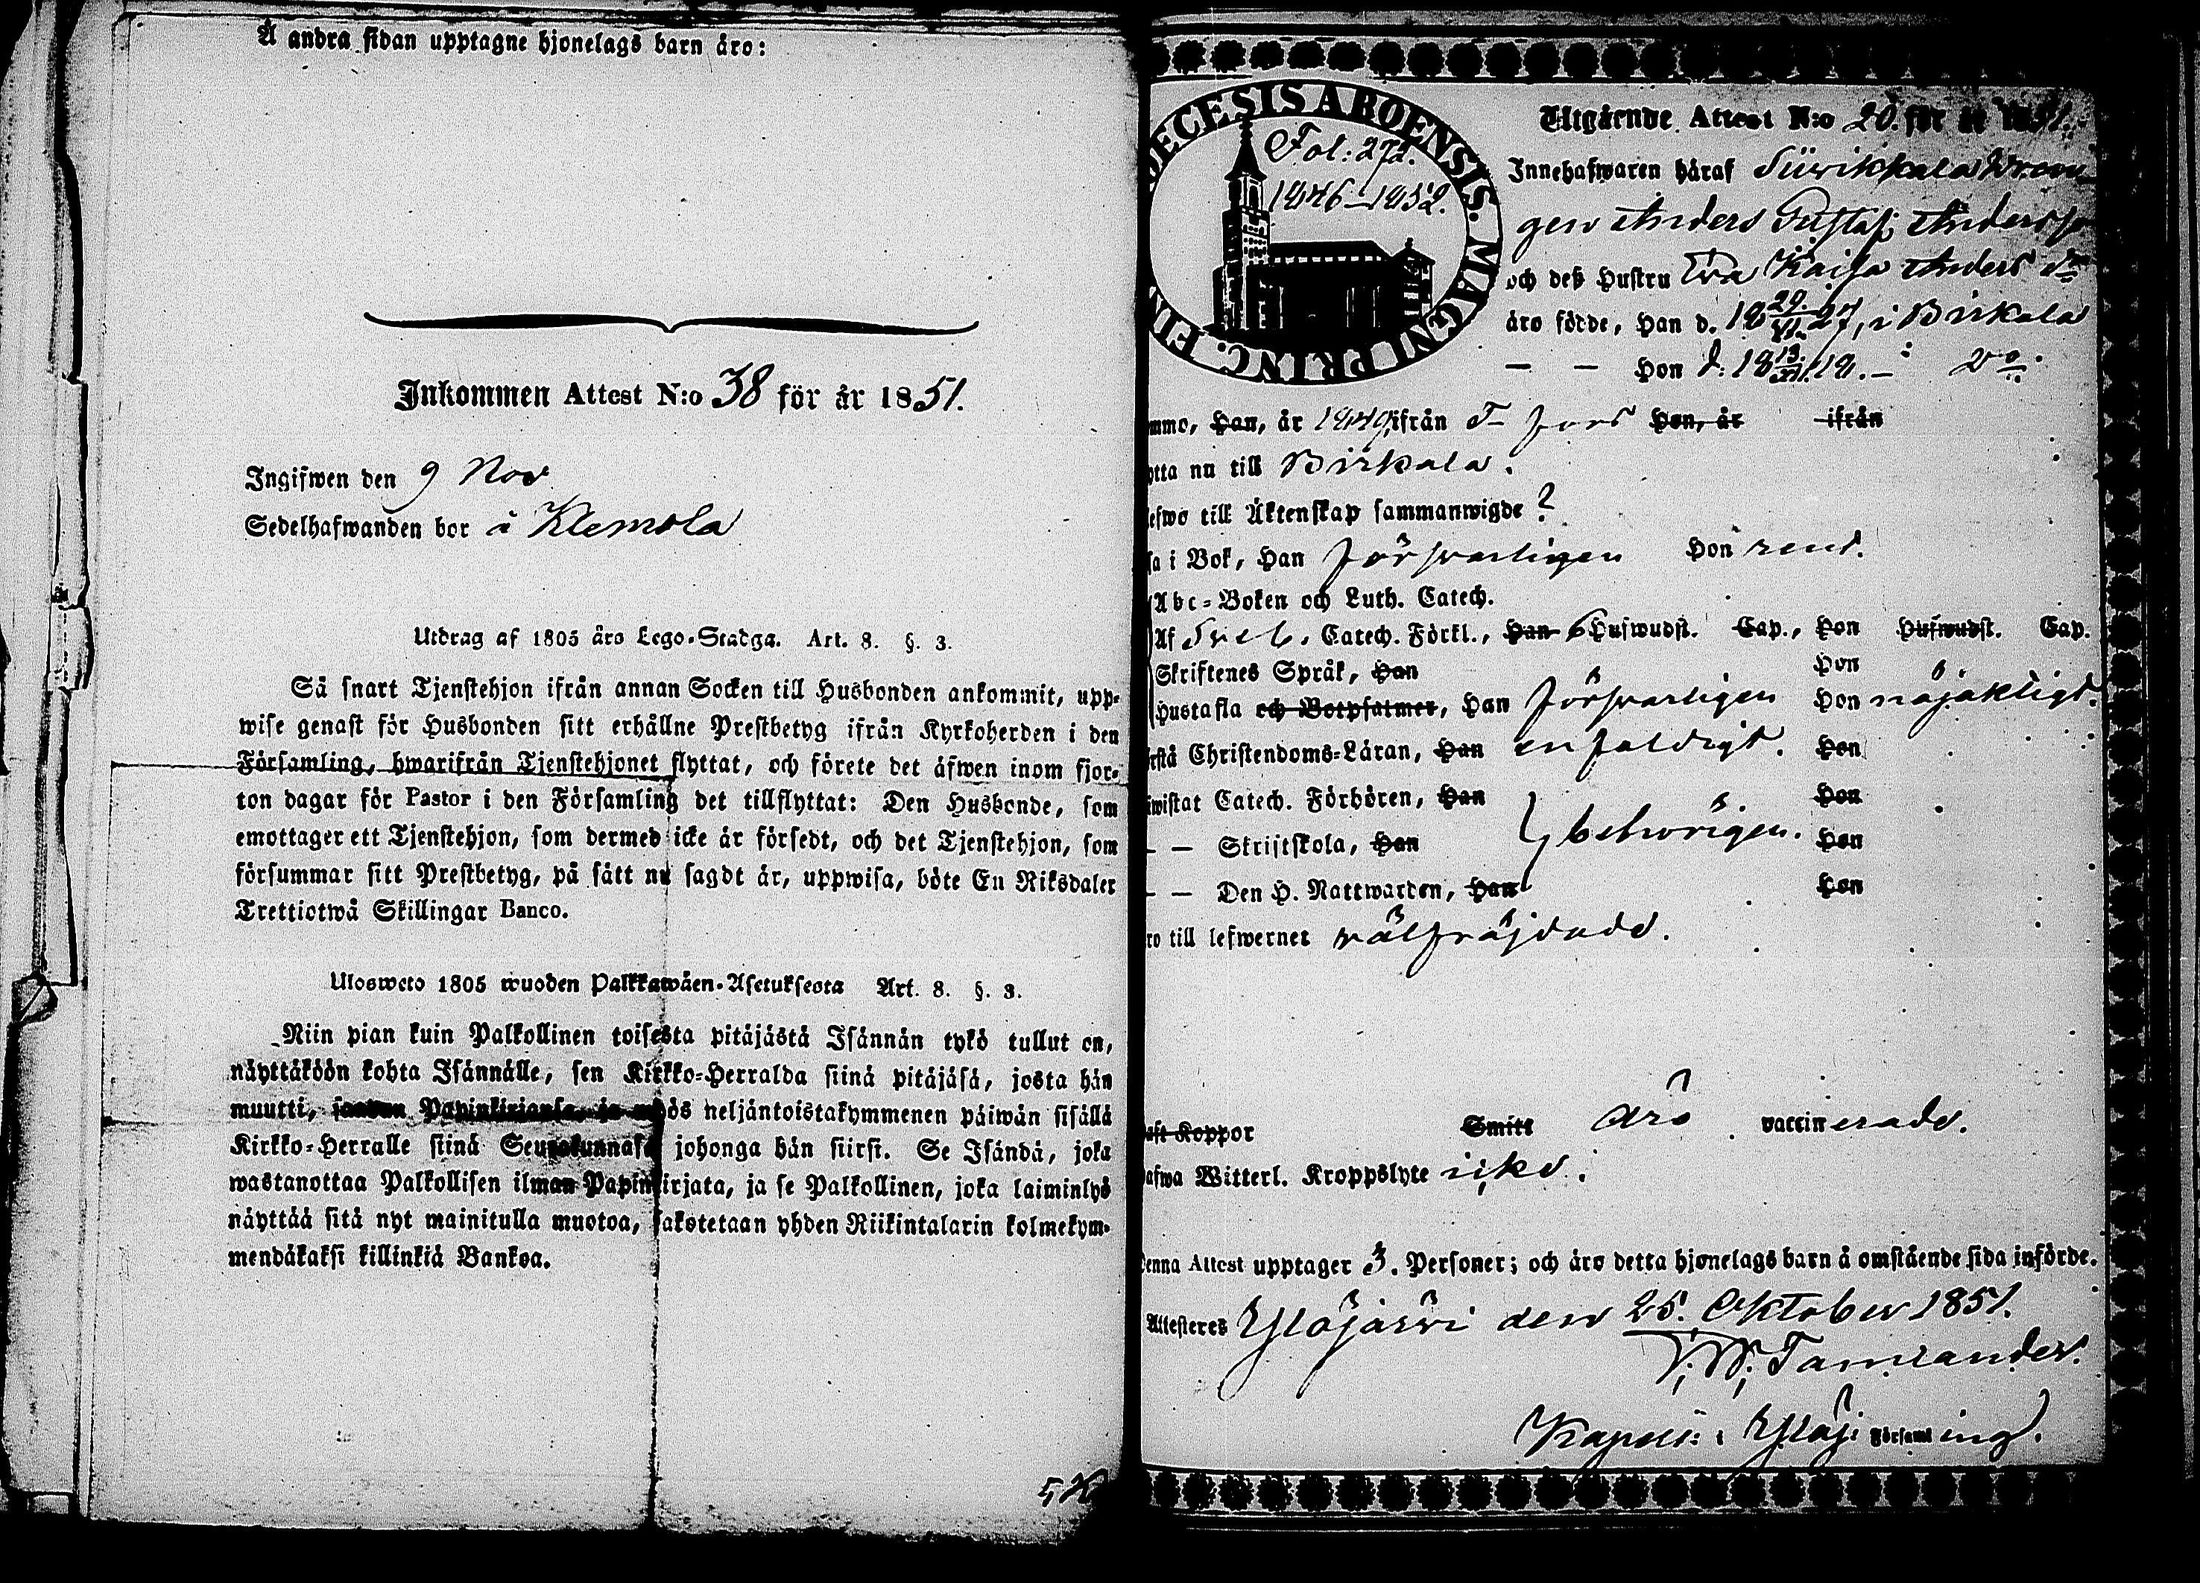 Å andra sidan upptagne hjonelags barn äro:
Inkommen Attest N:o 38 för år 1851.
Ingifwen den 9 Nov
Sedelhafwanden bor å Klemola
Utdrag af 1805 års Lego-Stadga. Art. 8. §. 3.
Så snart Tjenstehjon ifrån annan Socken till Husbonden ankommit, upp-
wise genast för Husbonden sitt erhållne Prestbetyg ifrån Kyrkoherden i den
Församling, hwarifrån Tjenstehjonet flyttat, och förete det äfwen inom fjor-
ton dagar för Pastor i den Församling det tillflyttat: Den Husbonde, som
emottager ett Tjenstehjon, som dermed icke är försedt, och det Tjenstehjon, som
försummar sitt Prestbetyg, på sätt nu sagdt är, uppwisa, böte En Riksdaler
Trettiotwå Skillingar Banco.
Ulosweto 1805 wuoden Palkkawäen-Asetuksesta Art. 8. §. 3.
Niin pian kuin Palkollinen toisesta pitäjästä Isännän tykö tullut on,
näyttäköön kohta Isännälle, sen Kirkko-Herralda siinä pitäjäsä, josta hän
muutti, saadun Papinkirjansa, ja myös neljäntoistakymmenen päiwän sisällä
Kirkko-Herralle siinä Seurakunnasa johonga hän siirsi. Se Isändä, joka
wastanottaa Palkollisen ilman Papinkirjata, ja se Palkollinen, joka laiminlyö
näyttää sitä nyt mainitulla muotoa, sakotetaan yhden Riikintalarin kolmekym-
mendäkaksi killinkiä Bankoa.
5K
ECESIS ABOENSIS. MAGNI PRINC. FIN
Fol: 272.
1846–1852.
Utgående Attest N:o 20. för år 1851.
Innehafwaren häraf Siiwikkala Dren
gen Anders Gustaf Andersso
och deß Hustru Eva Kaisa Anders dr
äro födde, Han d. 18 29/VI 27, i Birkala
— — Hon d: 18 13/XII 18. – i do
mmo, Han, år 1849 ifrån T fors Hon, år ifrån
ytta nu till Birkala.
efwo till Äktenskap sammanwigde ?
sa i Bok, Han försvarligen Hon rent.
Abc-Boken och Luth. Catech.
Af Sveb. Catech. Förkl., Han 6 Hufwudst. Cap., Hon Hufwudst. Cap.
Skriftenes Språk, Han Hon
Hustafla och Botpsalmer, Han försvarligen Hon nöjaktigt.
rstå Christendoms-Läran, Han enfaldigt. Hon
iwistat Catech. Förhören, Han Hon
— — Skriftskola, Han behörigen. Hon
— — Den H. Nattwarden, Han Hon
ro till lefwernet välfräjdade.
aft Koppor Smitt äro vaccinerade.
afwa Witterl. Kroppslyte icke.
Denna Attest upptager 3. Personer; och äro detta hjonelags barn å omstående sida införde.
Attesteres Ylöjärvi den 25. Oktober 1851.
Tamlander.
Kapell: i Ylöj: Församling.